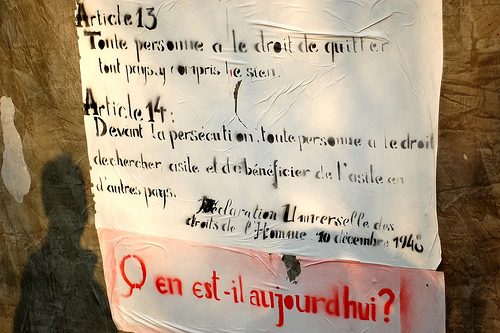 Article 13
Toute personne a le droit de quitter
tout pays, y compris le sien.
Article 14 :
Devant la persécution, toute personne a le droit
de chercher asile et de bénéficier de l'asile en
d'autres pays.
Déclaration Universelle des
droits de l'Homme 10 décembre 1948
Où en est-il aujourd'hui?